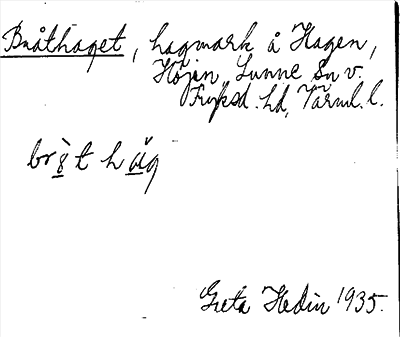 Bråthaget, hagmark å Hagen,
Höjen, Sunne Sn v.
Fryksd. hd, Värml. l.
Greta Hedin 1935.